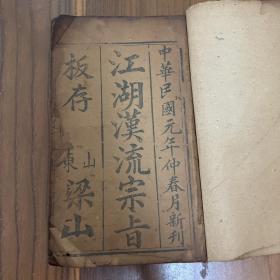 中華民國元年仲春月新刊
江湖漢流宗旨
板存
山東
梁山